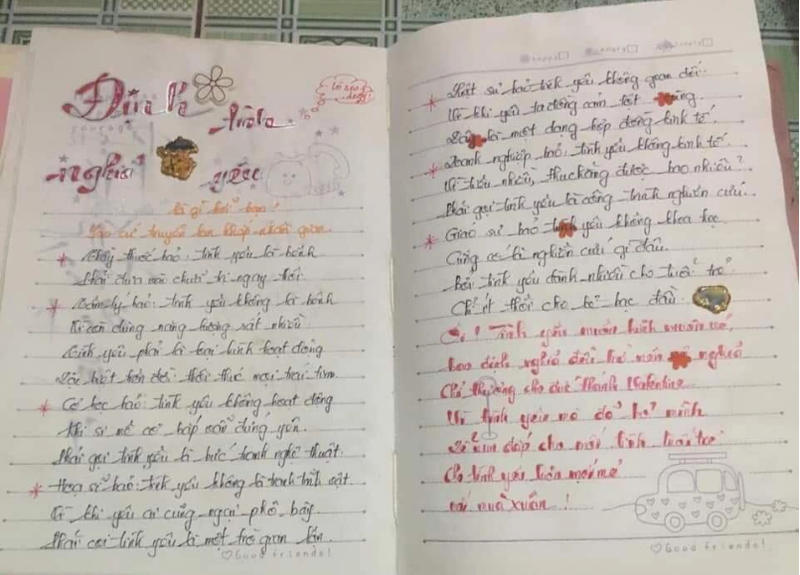 Đâu là
tình
nghĩa
yêu
là gì hỡi bạn!
truyền lan khắp nhân gian
* Thầy thuốc bảo: tình yêu là bệnh
Phải đưa vào chữa trị ngay thôi
* Tâm lý bảo: tình yêu không là bệnh
Vì còn dùng năng lượng rất nhiều
Tình yêu phải là loại hình hoạt động
bột hơn đời thổi thức mọi trái tim
* Cơ học bảo: tình yêu không hoạt động
Khi si mê cơ bắp vẫn đứng yên.
Phải gọi tình yêu là bức tranh nghệ thuật
* Họa sĩ bảo: tình yêu không là tranh tĩnh vật
Vì khi yêu ai cũng ngại phô bày
Phải coi tình yêu là một trò gian lận
♡Good friends!
Happy□ Angry□ Lonely□
* Luật sư bảo tình yêu không gian dối
Vì khi yêu ta đồng cảm rất
Đây là một dạng hợp đồng kinh tế.
* Doanh nghiệp bảo: tình yêu không kinh tế.
Vì tiêu nhiều, thu chẳng được bao nhiêu?
Phải gọi tình yêu là công trình nghiên cứu.
* Giáo sư bảo tình yêu không khoa học
Cũng có là nghiên cứu gì đâu.
Bởi tình yêu dành nhiều cho tuổi trẻ
Chỉ ít thôi cho kẻ bạc đầu.
Ôi! Tình yêu muôn hình muôn vẻ,
bao định nghĩa đều trở nên nghĩa
Chỉ thương cho đức Thánh Valentine
Vì tình yêu mà đổ hư mình
Để vun đắp cho mối tình tuổi trẻ
Cho tình yêu luôn mới mẻ
với mùa xuân!
♡Good friends!